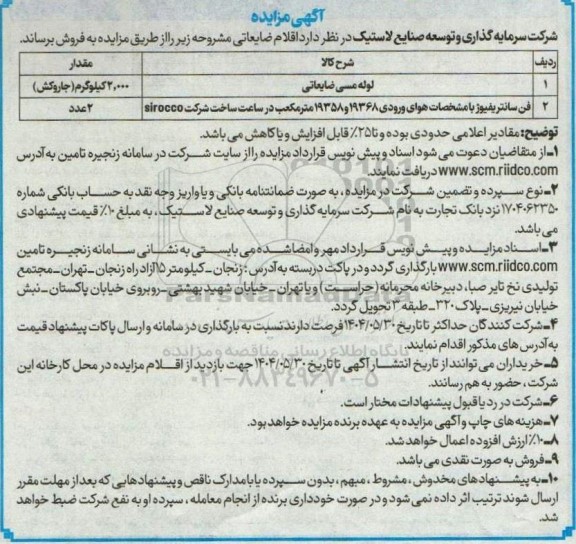 آگهی مزایده
شرکت سرمایه گذاری و توسعه صنایع لاستیک در نظر دارد اقلام ضایعاتی مشروحه زیر را از طریق مزایده به فروش برساند.
ردیف شرح کالا مقدار
۱ لوله مسی ضایعاتی ۲,۰۰۰ کیلوگرم (جاروکش)
۲ فن سانتریفیوژ با مشخصات هوای ورودی ۱۹۳۶۸ و ۱۹۳۵۸ مترمکعب در ساعت ساخت شرکت sirocco ۲ عدد
توضیح: مقادیر اعلامی حدودی بوده و تا ۲۵٪ قابل افزایش و یا کاهش می باشد.
۱ـ از متقاضیان دعوت می شود اسناد و پیش نویس قرارداد مزایده را از سایت شرکت در سامانه زنجیره تامین به آدرس
www.scm.riidco.com دریافت نمایند.
۲ـ نوع سپرده و تضمین شرکت در مزایده، به صورت ضمانتنامه بانکی و یا واریز وجه نقد به حساب بانکی شماره
۱۷۰۴۰۶۲۳۵۰ نزد بانک تجارت به نام شرکت سرمایه گذاری و توسعه صنایع لاستیک، به مبلغ ۱۰٪ قیمت پیشنهادی
می باشد.
۳ـ اسناد مزایده و پیش نویس قرارداد مهر و امضا شده می بایستی به نشانی سامانه زنجیره تامین
www.scm.riidco.com بارگذاری گردد و در پاکت دربسته به آدرس: زنجان ـ کیلومتر ۱۵ آزادراه زنجان ـ تهران ـ مجتمع
تولیدی نخ تایر صبا، دبیرخانه محرمانه (حراست) و یا تهران ـ خیابان شهید بهشتی ـ روبروی خیابان پاکستان ـ نبش
خیابان نیریزی ـ پلاک ۳۲۰ ـ طبقه ۳ تحویل گردد.
۴ـ شرکت کنندگان حداکثر تا تاریخ ۱۴۰۴/۰۵/۳۰ فرصت دارند نسبت به بارگذاری در سامانه و ارسال پاکات پیشنهاد قیمت
به آدرس های مذکور اقدام نمایند.
۵ـ خریداران می توانند از تاریخ انتشار آگهی تا تاریخ ۱۴۰۴/۰۵/۳۰ جهت بازدید از اقلام مزایده در محل کارخانه این
شرکت، حضور به هم رسانند.
۶ـ شرکت در رد یا قبول پیشنهادات مختار است.
۷ـ هزینه های چاپ و آگهی مزایده به عهده برنده مزایده خواهد بود.
۸ـ ۱۰٪ ارزش افزوده اعمال خواهد شد.
۹ـ فروش به صورت نقدی می باشد.
۱۰ـ به پیشنهادهای مخدوش، مشروط، مبهم، بدون سپرده یا با مدارک ناقص و پیشنهادهایی که بعد از مهلت مقرر
ارسال شوند ترتیب اثر داده نمی شود و در صورت خودداری برنده از انجام معامله، سپرده او به نفع شرکت ضبط خواهد
شد.
ParsNamadData
پایگاه اطلاع رسانی مناقصه و مزایده
۰۲۱-۸۸۳۴۹۶۷۰-۵